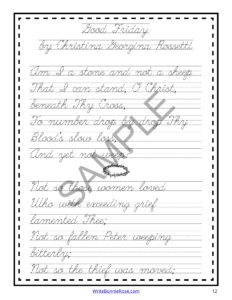 Good Friday
by Christina Georgina Rossetti
Am I a stone and not a sheep
That I can stand, O Christ,
beneath Thy Cross,
To number drop by drop Thy
Blood's slow loss,
And yet not weep?
SAMPLE
Not so those women loved
Who with exceeding grief
lamented Thee;
Not so fallen Peter weeping
bitterly;
Not so the thief was moved;
WriteBonnieRose.com
12